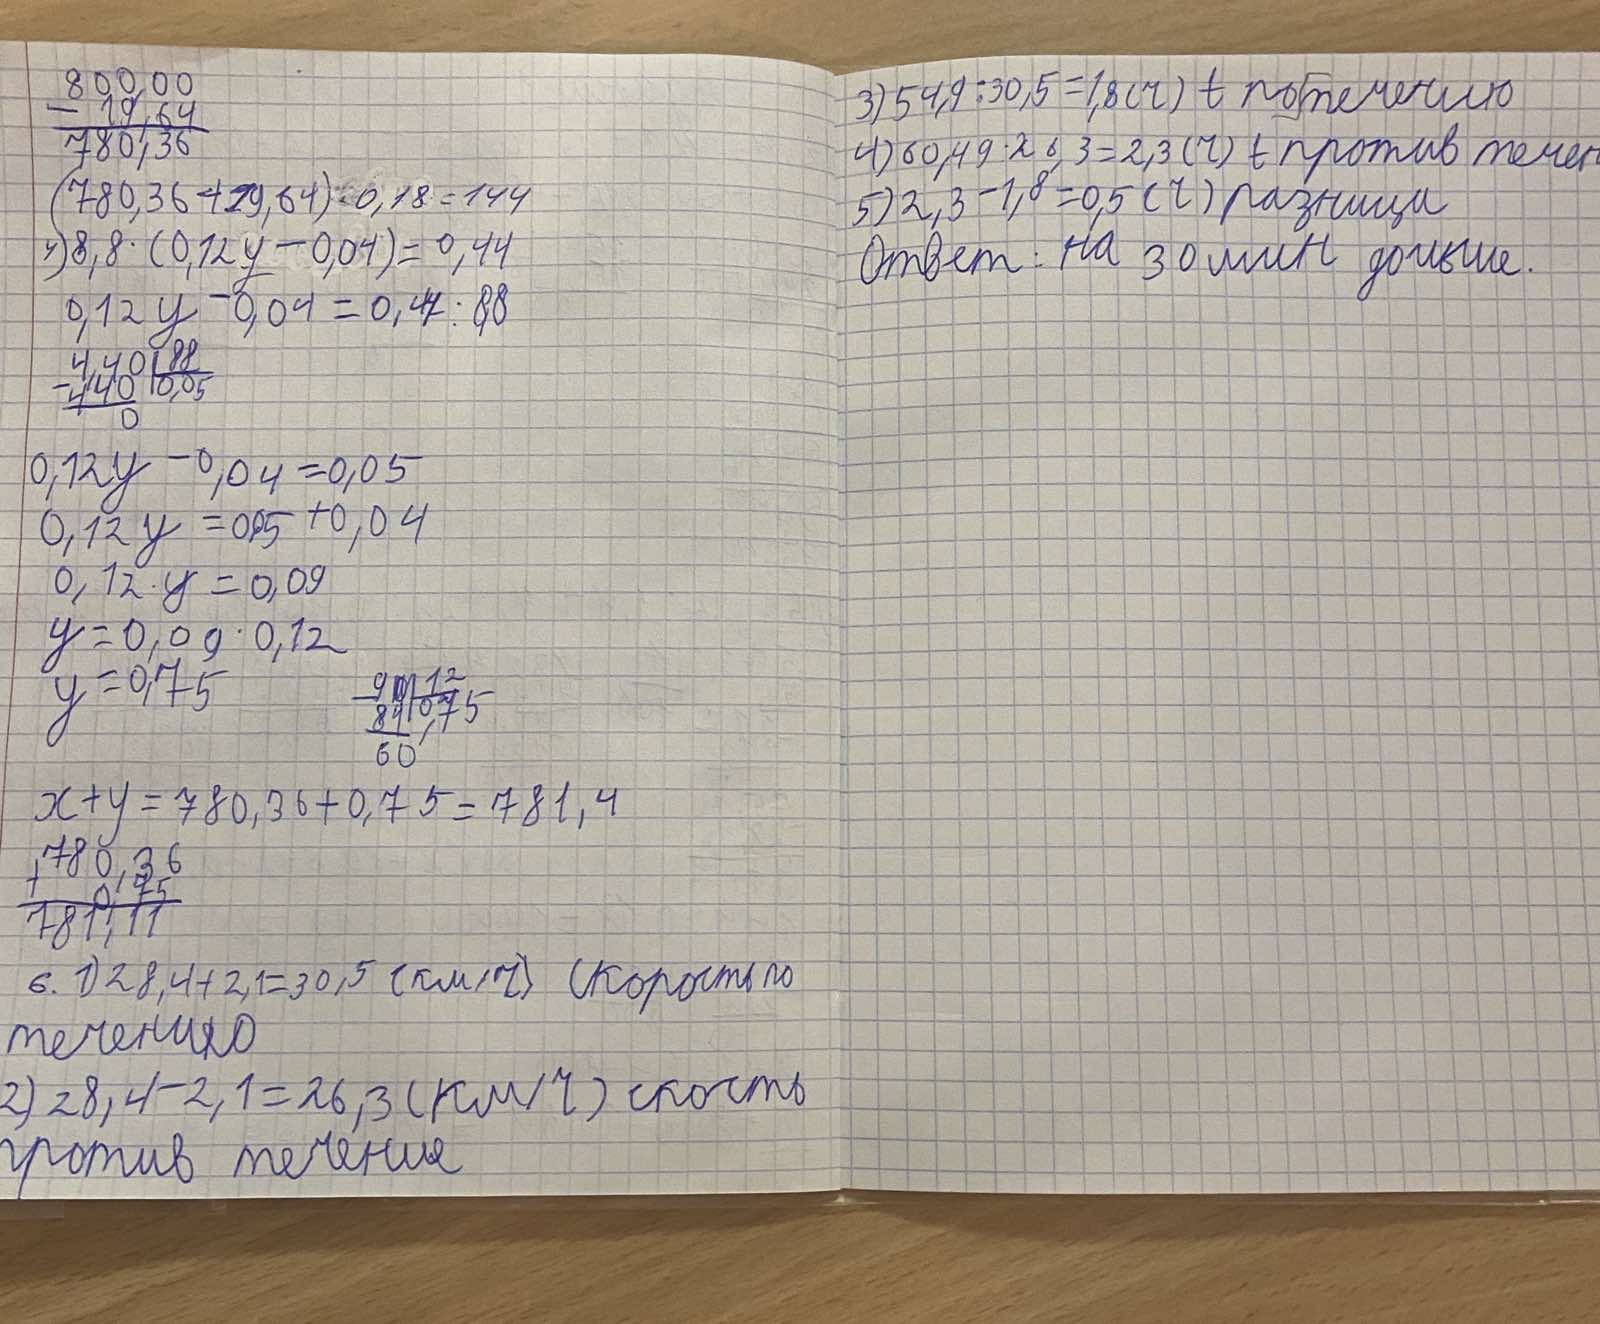 800,00
- 19,64
780,36
(780,36+19,64)·0,18=144
у)8,8·(0,12у-0,04)=0,44
0,12у-0,04=0,44:8,8
4,40 88
-440 0,05
0
0,12у-0,04=0,05
0,12у=0,05+0,04
0,12·у=0,09
у=0,09·0,12
у=0,75
90 12
-84 0,75
60
х+у=780,36+0,75=781,4
780,36
+ 0,75
781,11
6. 1)28,4+2,1=30,5 (км/ч) скорость по
течению
2) 28,4-2,1=26,3(км/ч) скость
против течения
3)54,9:30,5=1,8(ч) t по течению
4)60,49·26,3=2,3(ч) t против течен
5)2,3-1,8=0,5(ч) разница
Ответ: на 30 мин дольше.